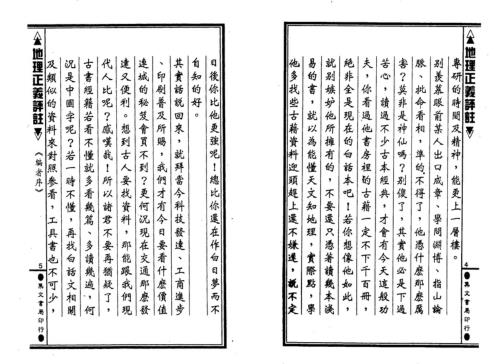 地理正義評註
4
吳文書局印行
專研的時間及精神，能更上一層樓。
別羨慕眼前某人出口成章，學問淵博、指山論
脈、批命看相，準的不得了，他憑什麼那麼厲
害？莫非是神仙嗎？別傻了，其實他必是下過
苦心，讀過不少古本經典，才會有今天這般功
夫，你看過他書房裡的古書不下千百冊，
絕非全是現在的白話本吧！若你想像他如此，
就別嫉妒他所擁有的，不要還只憑著讀幾本淺
易的書，就以為能懂天文知地理，實際點，學
他多找些古籍資料迎頭趕上還不嫌遲，說不定
日後你比他更強呢！總比你還在作白日夢而不
自知的好。
其實話說回來，就拜當今科技發達、工商進步
、印刷普及所賜，我們才有今日要看什麼價值
連城的秘笈會買不到？更何況現在交通那麼發
達又便利。想到古人要找資料，那能跟我們現
代人比呢？感嘆我！所以諸君不要再猶疑了，
古書經籍若看不懂就多看幾篇、多讀幾遍，何
況是中國字呢？若一時不懂，再找白話文相關
及類似的資料來對照參看，工具書也不可少，
地理正義評註
（編者序）
5
吳文書局印行